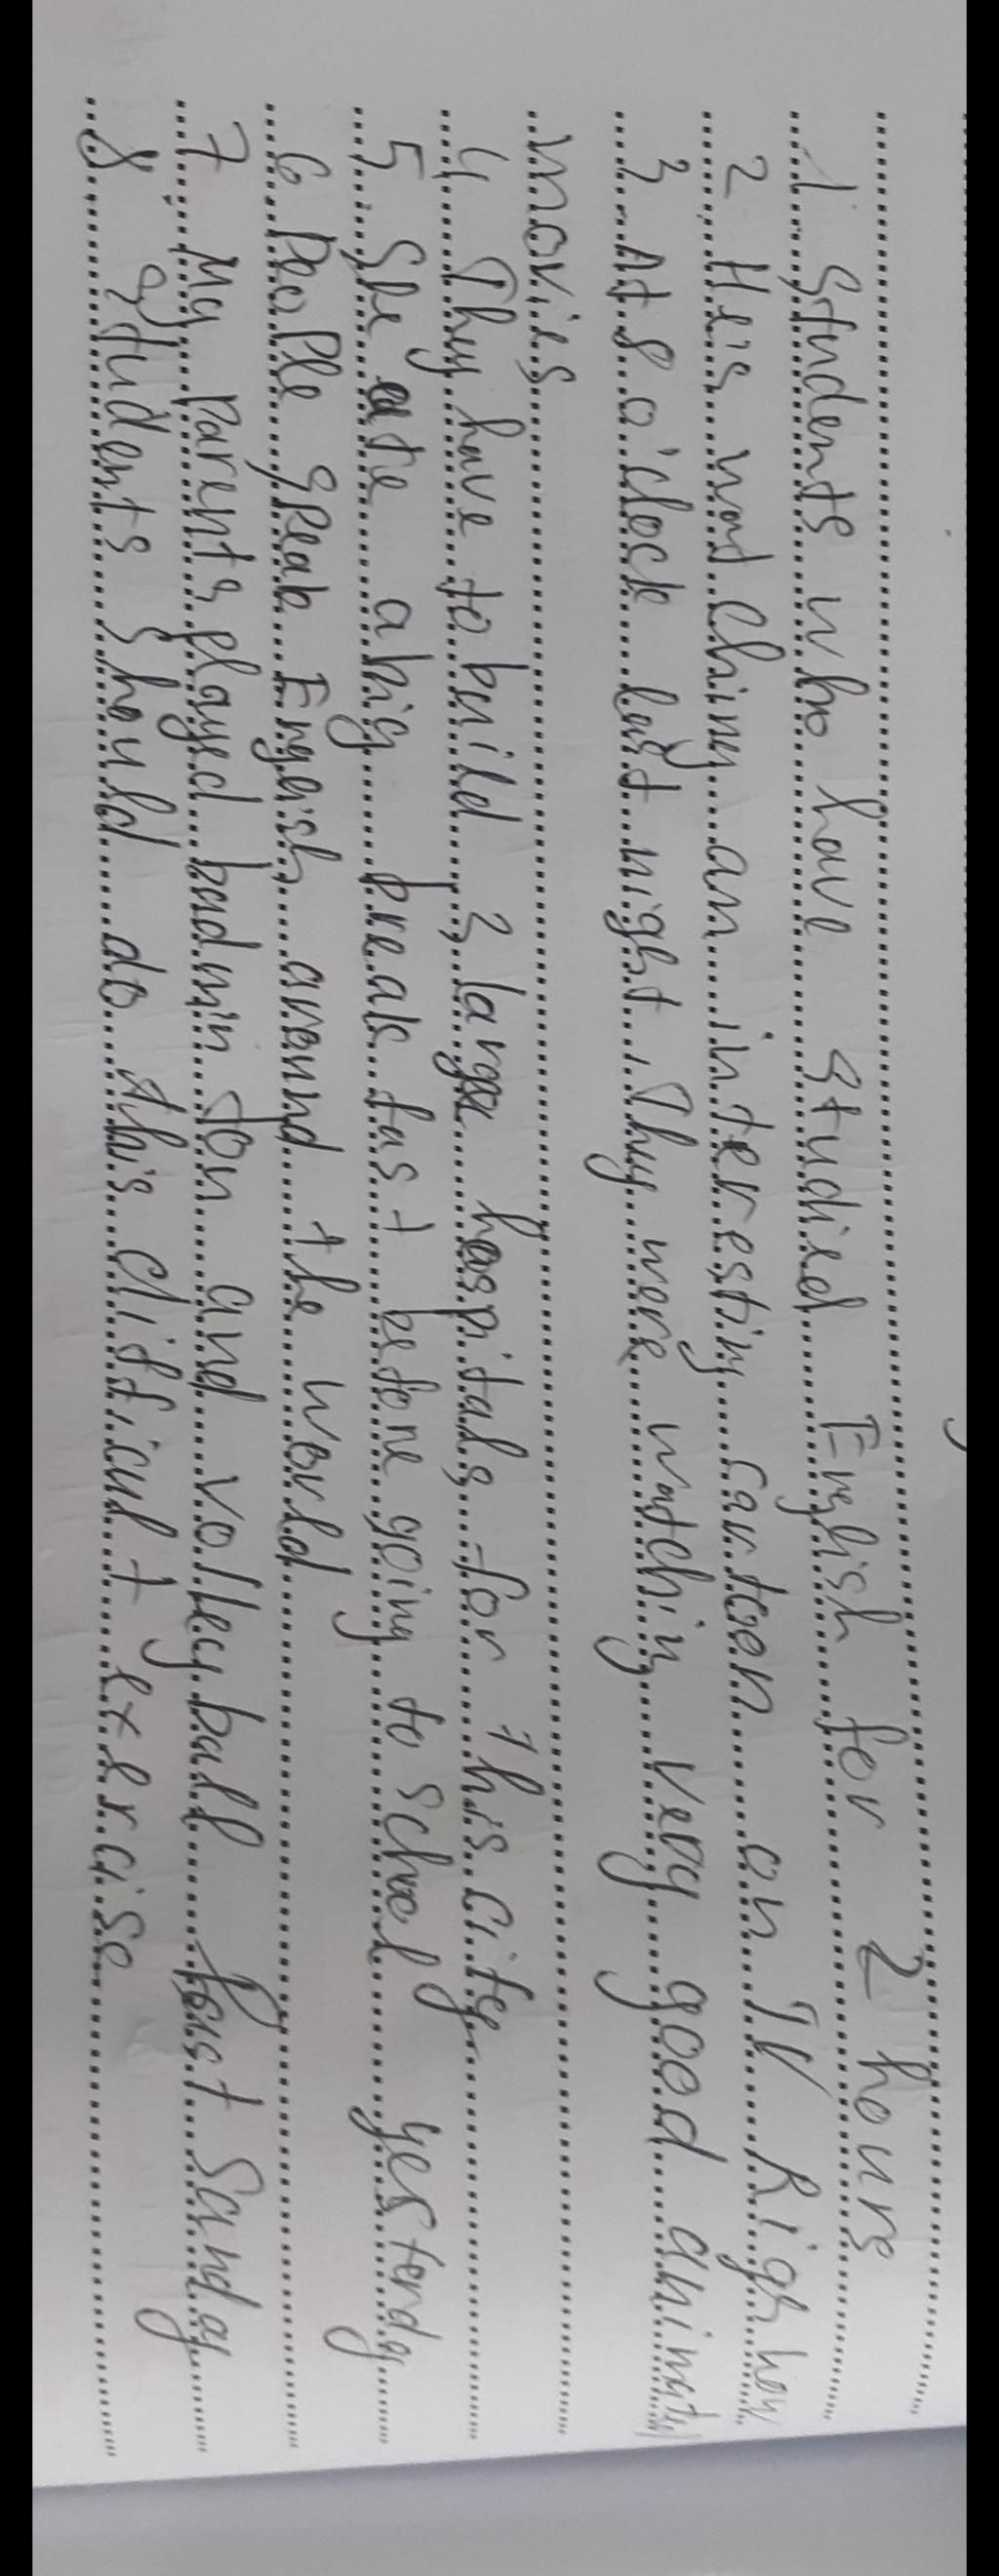 1 Students who have studied English for 2 hours
2 He is watching an interesting cartoon on TV Righ now
3 At 8 o'clock last night, They were watching very good animated
movies
4 They have to build 3 large hospitals for this city
5 She ate a big breakfast before going to school yesterday
6 People speak English around the world
7 My parents played badminton and volleyball last Sunday
8 students should do this difficult exercise